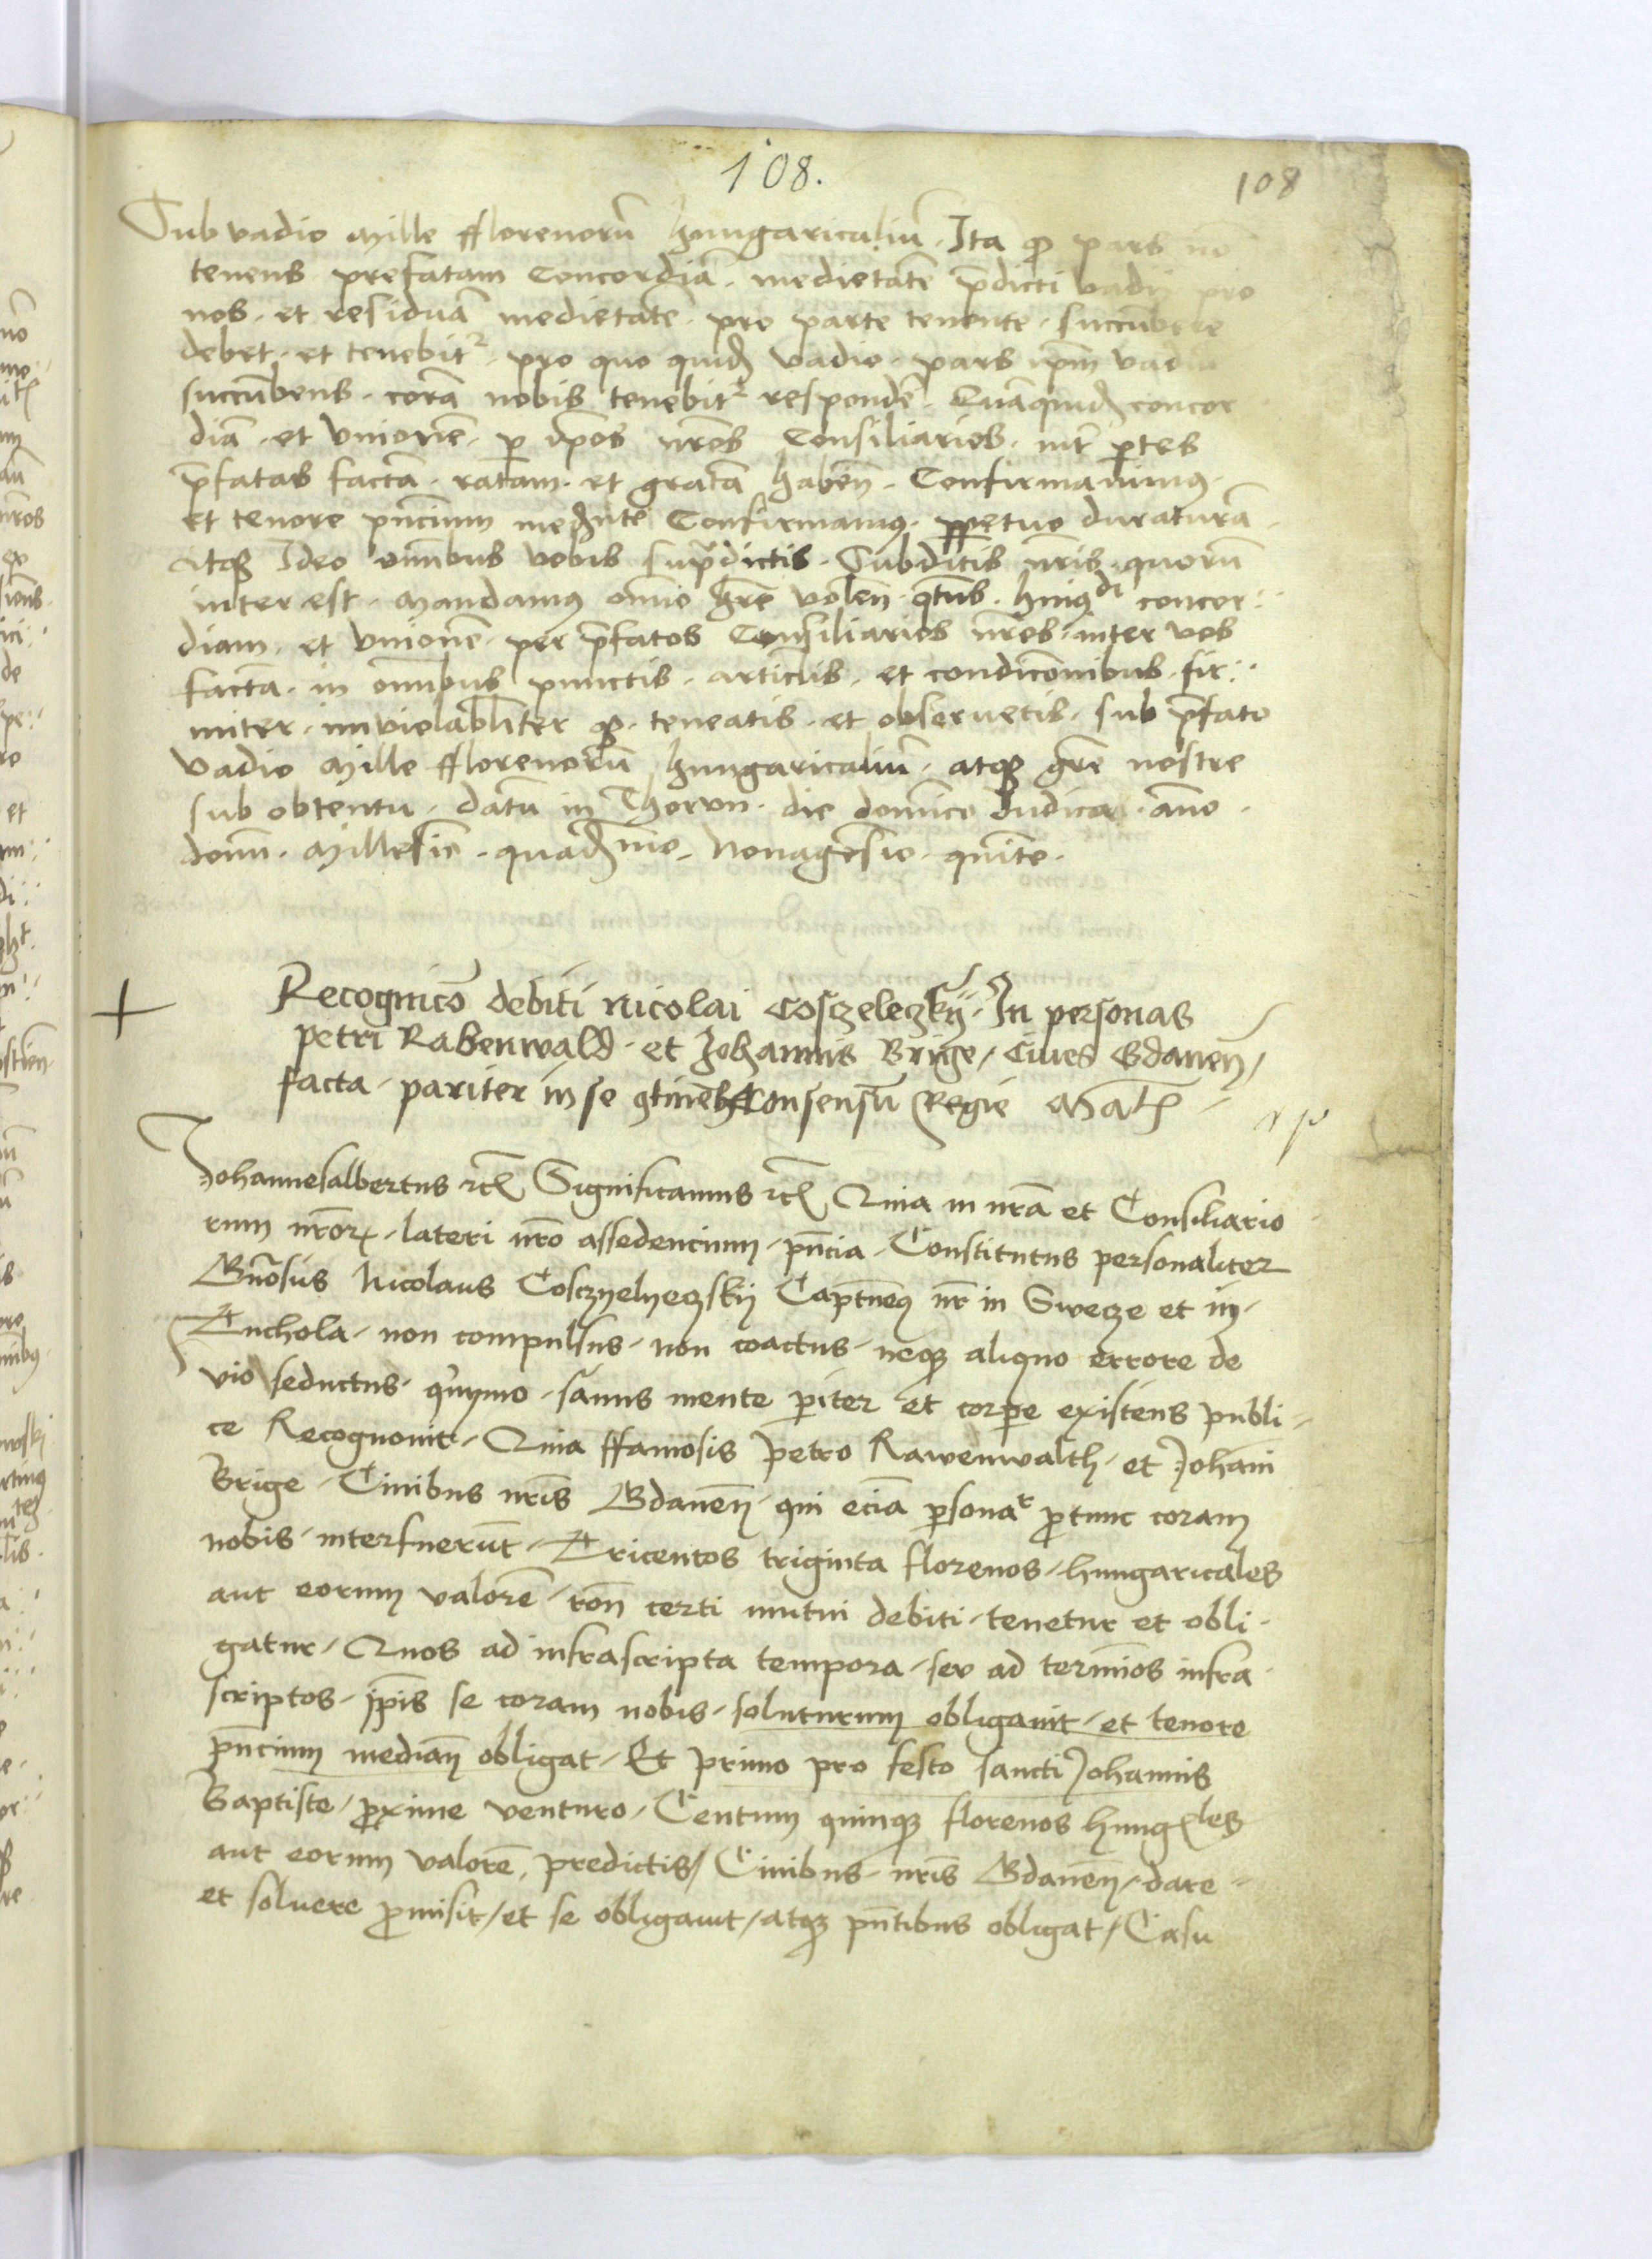 108.
108
Sub vadio Mille fflorenorū hungaricaliū. Ita ꝙ pars nō
tenens prefatam Concordiā. medietatē p̄dicti vadij pro
nos. et residuā medietatē. pro parte tenente. succūbere
debet. et tenebitꝛ. pro quo quidꝫ vadio. pars ip̄m vadiū
succūbens. corā nobis tenebitꝛ respondē. Quāquidꝫ concor
diā. et Vnionē. ꝑ ip̄os nr̄os Consiliarios. int̄ ꝑtes
p̄fatas factā. ratam. et gratā habeñ. Confirmauimꝰ.
et tenore pn̄cium medꝫnte Confirmamꝰ. ꝑpetuo duraturā.
Atqꝫ Ideo om̄ibus vobis sup̄dictis. Subditis nr̄is. quorū
inter est. Mandamꝰ om̄io gr̄e volen̄. qtn̄s. huiꝰdi concor:
diam. et Vnionē. per p̄fatos Consiliarios nr̄os. inter vos
factā. in om̄ibus punctis. articl̄is. et condicōnibus. fir:
miter. inviolabl̄iter ꝙ. teneatis. et obseruetis. sub p̄fato
vadio Mille fflorenorū hungaricaliū. atqꝫ gr̄e nostre
sub obtentu. datū in Thorvn. die domīco Iudica. āno.
domī. Millesīo. quadꝫmo. Nonagesīo. quīto.
Recognicō debiti Nicolai Cosczeleczkij. In personas
petri Rabenwald. et Johannis Brige / Ciues Gdaneñ /
facta. pariter in se ꝯtineñ Consensū Regie Mat̄ꝭ
Johannesalbertus ꝛcꝭ Significamus ꝛcꝭ Quia in nr̄a et Consiliario
rum nr̄oꝝ. lateri nr̄o assedencium. pn̄cia. Constitutus personaliter
Gn̄osus Nicolaus Cosczyelyeczskij Capt̄neꝰ nr̄ in Swecze et in
Tuchola. non compulsus. non coactus. neqꝫ aliquo errore de
vio seductus. q̄nymo. sanus mente ꝑiter et corꝑe existens publi
ce Recognouit. Quia ffamosis petro Rawenwalth. et Johāni
Brige. Ciuibus nr̄is Gdaneñ. qui eciā ꝑsonar ꝓtunc coram
nobis. interfuerūt. Tricentos triginta florenos. hungaricales
aut eorum valorē. roñ certi mutui debiti. tenetur et obli
gatur. Quos ad infrascripta tempora. seu ad termīos infra
scriptos. ip̄is se coram nobis. soluturum obligauit. et tenore
pn̄cium mediañ obligat. Et primo pro festo sancti Johannis
Baptiste. ꝓxime venturo. Centum quinqꝫ florenos hungꝭles
aut eorum valorē, predictis / Ciuibus. nr̄is Gdaneñ. dare
et soluere ꝓmisit / et se obligauit / atqꝫ pn̄tibus obligat / Casu